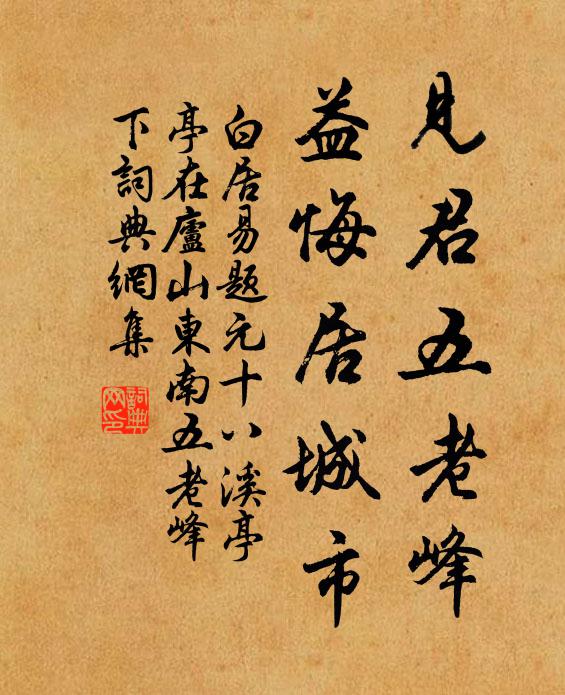 見君五老峰
益悔居城市
白居易題元十八溪亭
亭在廬山東南五老峰
下詞典網集
詞典網印